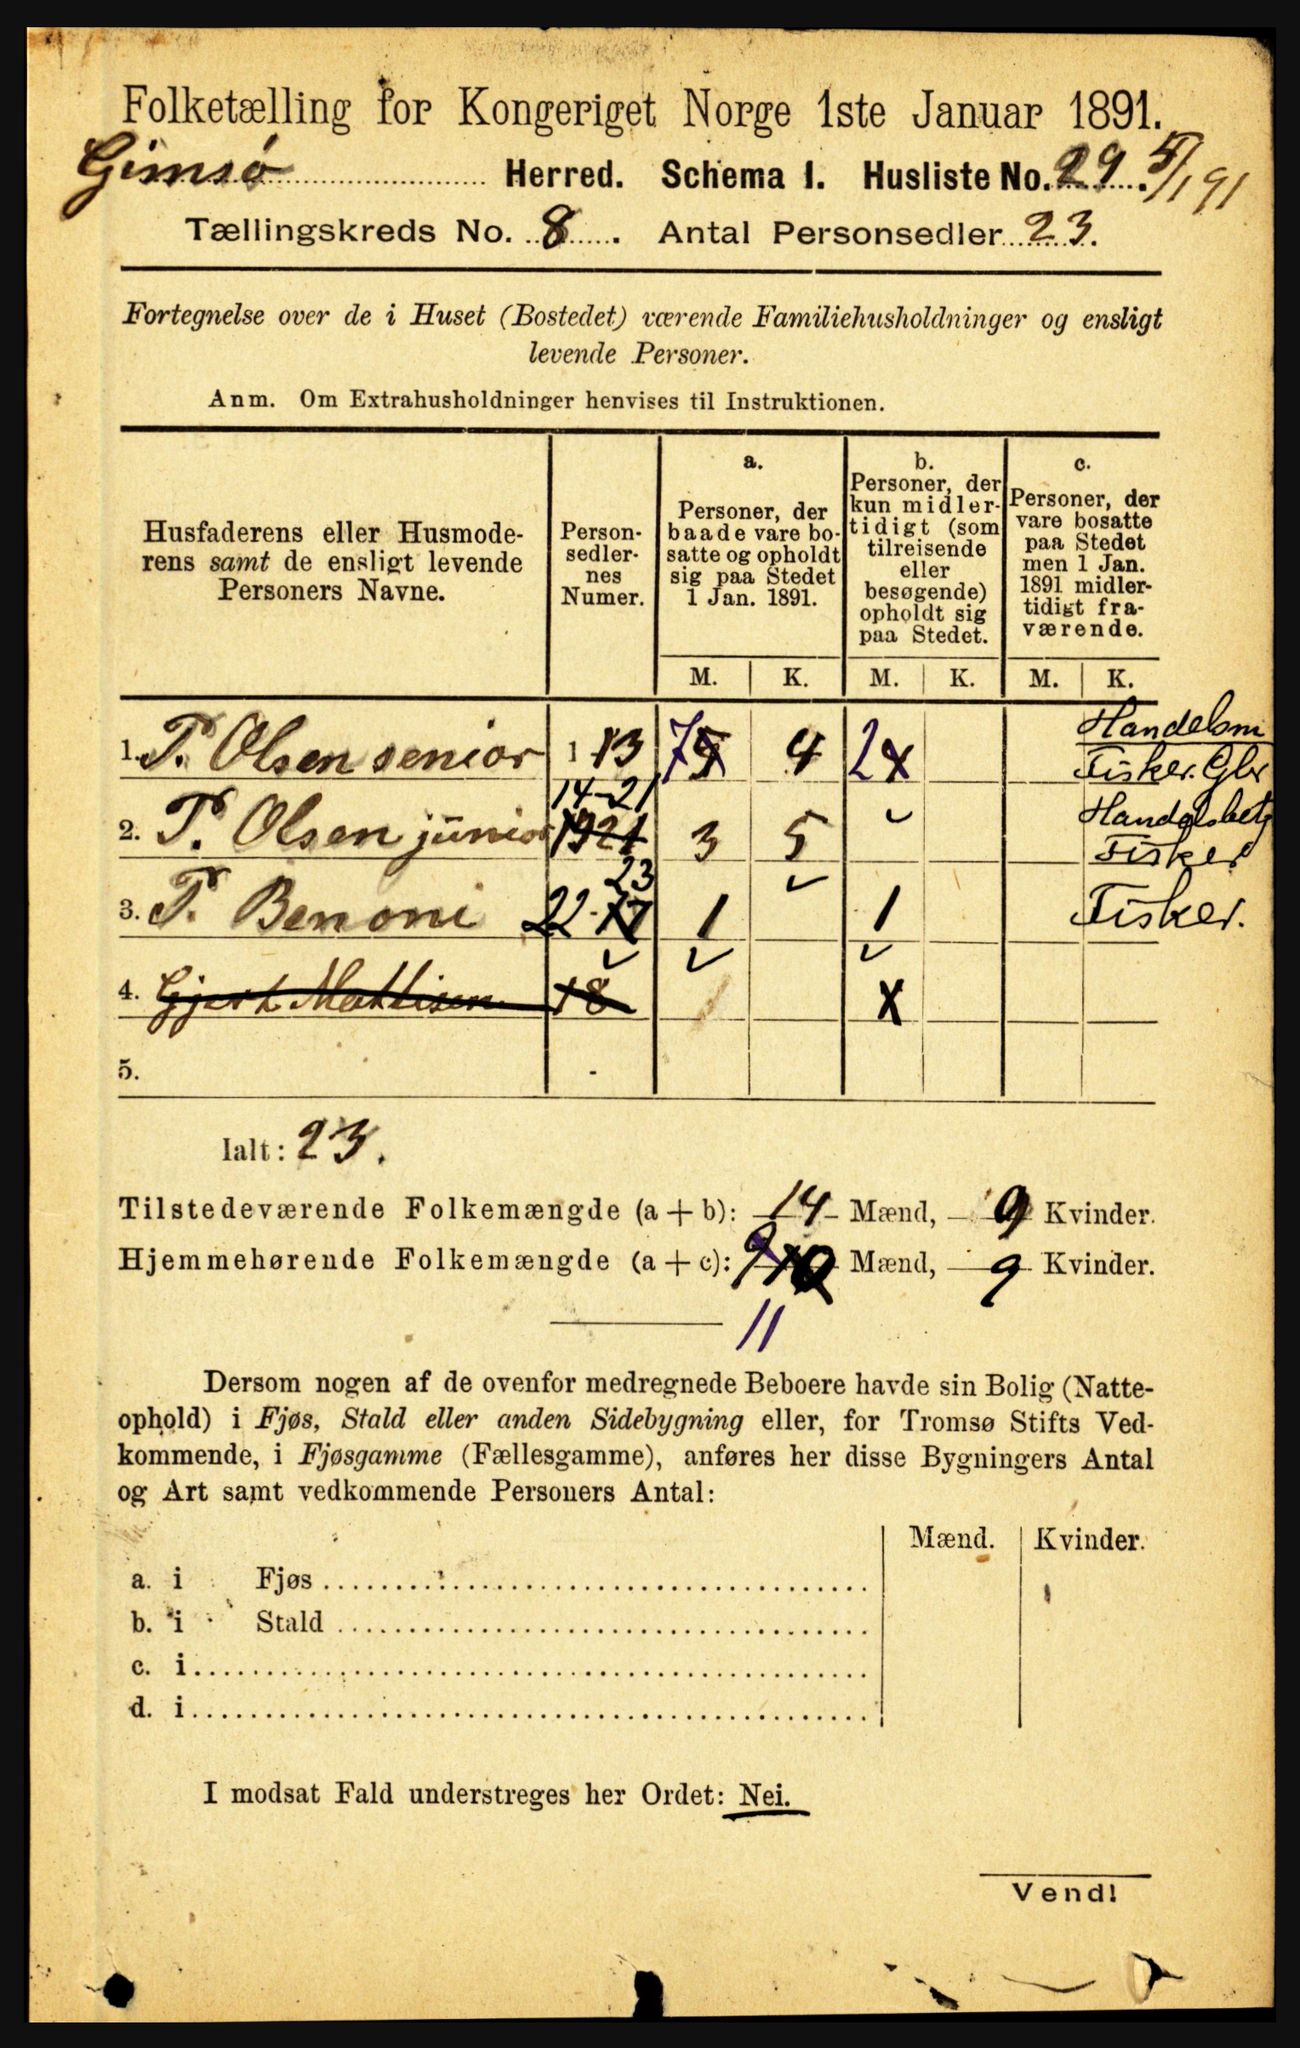 Folketælling for Kongeriget Norge 1ste Januar 1891.
Gimsø Herred. Schema 1. Husliste No. 29. 5/1 91
Tællingskreds No. 8. Antal Personsedler 23.
Fortegnelse over de i Huset (Bostedet) værende Familiehusholdninger og ensligt
levende Personer.
Anm. Om Extrahusholdninger henvises til Instruktionen.
Husfaderens eller Husmode-
rens samt de ensligt levende
Personers Navne.
Person-
sedler-
nes
Numer.
a.
Personer, der
baade vare bo-
satte og opholdt
sig paa Stedet
1 Jan. 1891.
b.
Personer, der
kun midler-
tidigt (som
tilreisende
eller
besøgende)
opholdt sig
paa Stedet.
c.
Personer, der
vare bosatte
paa Stedet
men 1 Jan.
1891 midler-
tidigt fra-
værende.
M. K. M. K. M. K.
1. P. Olsen senior 1-13 7 4 2 Handelsm
Fisker. Gbr
2. P. Olsen junior 14-21 3 5 Handelsbetj
Fisker
3. P. Benoni 22-23 1 1 Fisker.
4. Gjert Mathisen 18
5.
Ialt: 23.
Tilstedeværende Folkemængde (a + b): 14 Mænd, 9 Kvinder.
Hjemmehørende Folkemængde (a + c): 9 10 Mænd, 9 Kvinder.
11
Dersom nogen af de ovenfor medregnede Beboere havde sin Bolig (Natte-
ophold) i Fjøs, Stald eller anden Sidebygning eller, for Tromsø Stifts Ved-
kommende, i Fjøsgamme (Fællesgamme), anføres her disse Bygningers Antal
og Art samt vedkommende Personers Antal:
Mænd. Kvinder.
a. i Fjøs
b. i Stald
c. i
d. i
I modsat Fald understreges her Ordet: Nei.
Vend!